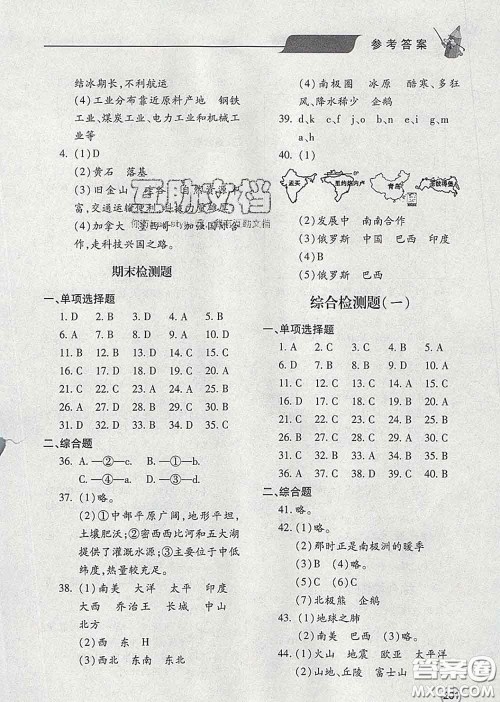 参考答案
结冰期长,不利航运
(4)工业分布靠近原料产地 钢铁
工业、煤炭工业、电力工业和机械工
业等
4. (1)D
(2)黄石 落基
(3)旧金山
富,交通运输便利
(4)加拿大
作,走科技兴国之路。
互助文档
期末检测题
一、单项选择题
1. D 2. B 3. D 4. D 5. C
6. A 7. D 8. D 9. C 10. C
11. B 12. B 13. D 14. D 15. C
16. B 17. D 18. C 19. B 20. C
21. C 22. C 23. C 24. B 25. C
26. A 27. D 28. B 29. A 30. B
31. D 32. D 33. D 34. B 35. C
二、综合题
36. A. —②—c. B. —①—b.
C. —④—a. D. —③—d.
37. (1)略。
(2)①中部平原广阔,地形平坦,
土壤肥沃;②密西西比河和五大湖
提供了灌溉水源;③主要位于中低
纬度,热量较充足。
38. (1)南美 大洋 太平 印度
大西 乔治王 长城 中山
北方
(2)西 东 H
(3)西北 东南 东北
(4)南极圈 冰原 酷寒、多狂
风、降水稀少 企鹅
39. d、k c、f j、o b、n e、i g、m
a、h
40. (1)
孟买 里约热内卢 青岛
(2)发展中 南南合作
(3)俄罗斯 中国 巴西 印度
(4)巴西
(5)俄罗斯 巴西
综合检测题(一)
一、单项选择题
1. A 2. C 3. C 4. B 5. A
6. A 7. B 8. A 9. B 10. B
11. C 12. D 13. B 14. A 15. A
16. C 17. A 18. B 19. A 20. C
21. D 22. B 23. C 24. D 25. C
26. C 27. C 28. A 29. B 30. C
31. D 32. C 33. D 34. C 35. D
36. A 37. C 38. C 39. D 40. B
二、综合题
41. 略。
42. (1)略。
(2)那时正是南极洲的暖季
(3)B (4)C
(5)C (6)C
(7)北极熊 企鹅
43. (1)地球之肺
(2)南美 巴西 B
44. (1)火山 地震 欧亚 太平洋
(2)山地、丘陵 富士山
答案圈